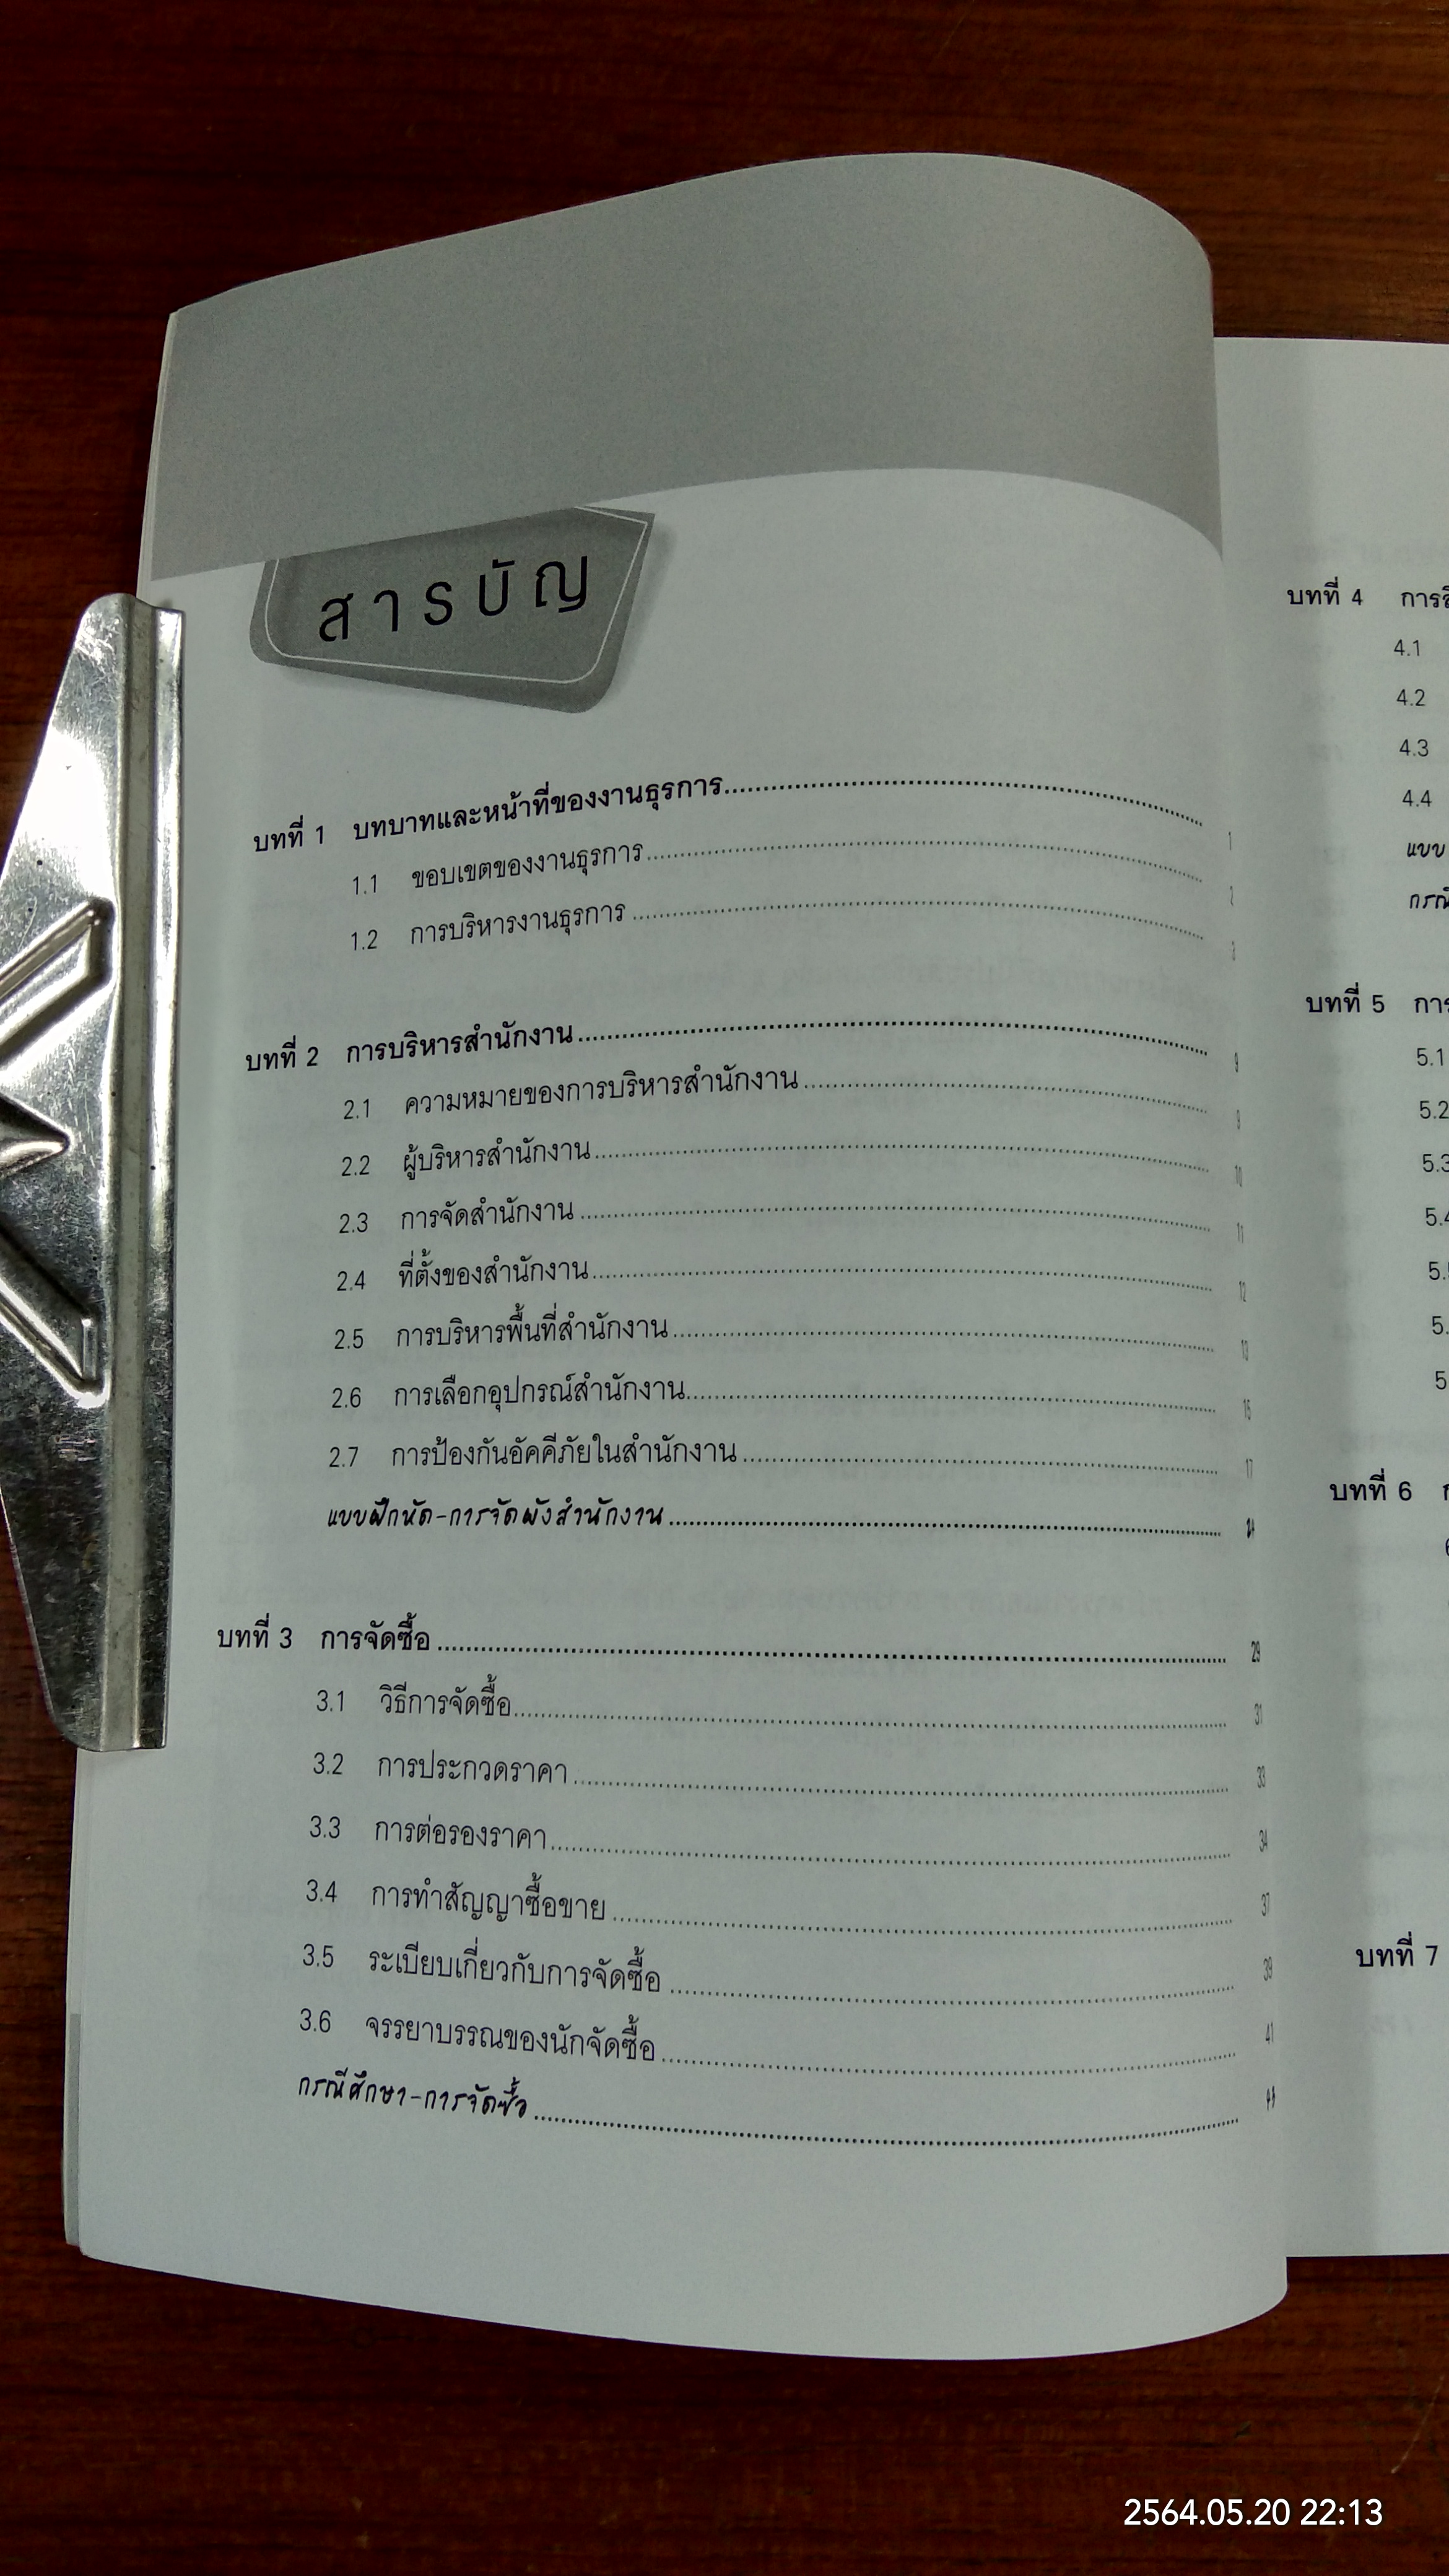 สารบัญ
บทที่ 1 บทบาทและหน้าที่ของงานธุรการ 1
1.1 ขอบเขตของงานธุรการ 2
1.2 การบริหารงานธุรการ 3
บทที่ 2 การบริหารสำนักงาน 9
2.1 ความหมายของการบริหารสำนักงาน 9
2.2 ผู้บริหารสำนักงาน 10
2.3 การจัดสำนักงาน 11
2.4 ที่ตั้งของสำนักงาน 12
2.5 การบริหารพื้นที่สำนักงาน 13
2.6 การเลือกอุปกรณ์สำนักงาน 15
2.7 การป้องกันอัคคีภัยในสำนักงาน 17
แบบฝึกหัด-การจัดผังสำนักงาน
บทที่ 3 การจัดซื้อ 29
3.1 วิธีการจัดซื้อ 31
3.2 การประกวดราคา 33
3.3 การต่อรองราคา 34
3.4 การทำสัญญาซื้อขาย 37
3.5 ระเบียบเกี่ยวกับการจัดซื้อ 39
3.6 จรรยาบรรณของนักจัดซื้อ 41
กรณีศึกษา-การจัดซื้อ
บทที่ 4
4.1
4.2
4.3
4.4
แบบ
บทที่ 5
5.1
5.2
5.3
บทที่ 6
บทที่ 7
2564.05.20 22:13